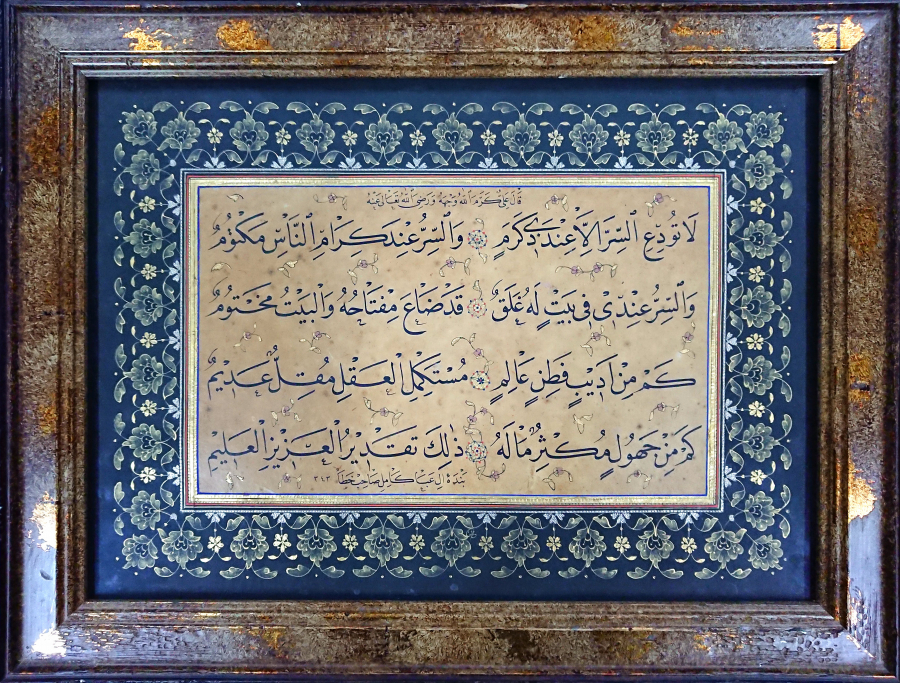 قَالَ عَلِيٌّ كَرَّمَ اللّٰهُ وَجْهَهُ وَرَضِيَ اللّٰهُ تَعَالٰى عَنْهُ
لَا تُودِعِ السِّرَّ اِلَّا عِنْدَ ذِي كَرَمٍ وَالسِّرُّ عِنْدَ كِرَامِ النَّاسِ مَكْتُومُ
وَالسِّرُّ عِنْدِي فِي بَيْتٍ لَهُ غَلَقٌ قَدْ ضَاعَ مِفْتَاحُهُ وَالْبَيْتُ مَخْتُومُ
كَمْ مِنْ اَدِيبٍ فَطِنٍ عَالِمٍ مُسْتَكْمِلِ الْعَقْلِ مُقِلٌّ عَدِيمٌ
كَمْ مِنْ جَهُولٍ مُكْثِرٌ مَالَهُ ذٰلِكَ تَقْدِيرُ الْعَزِيزِ الْعَلِيمِ
بندهٔ ال عبا كامل صاحب خطا